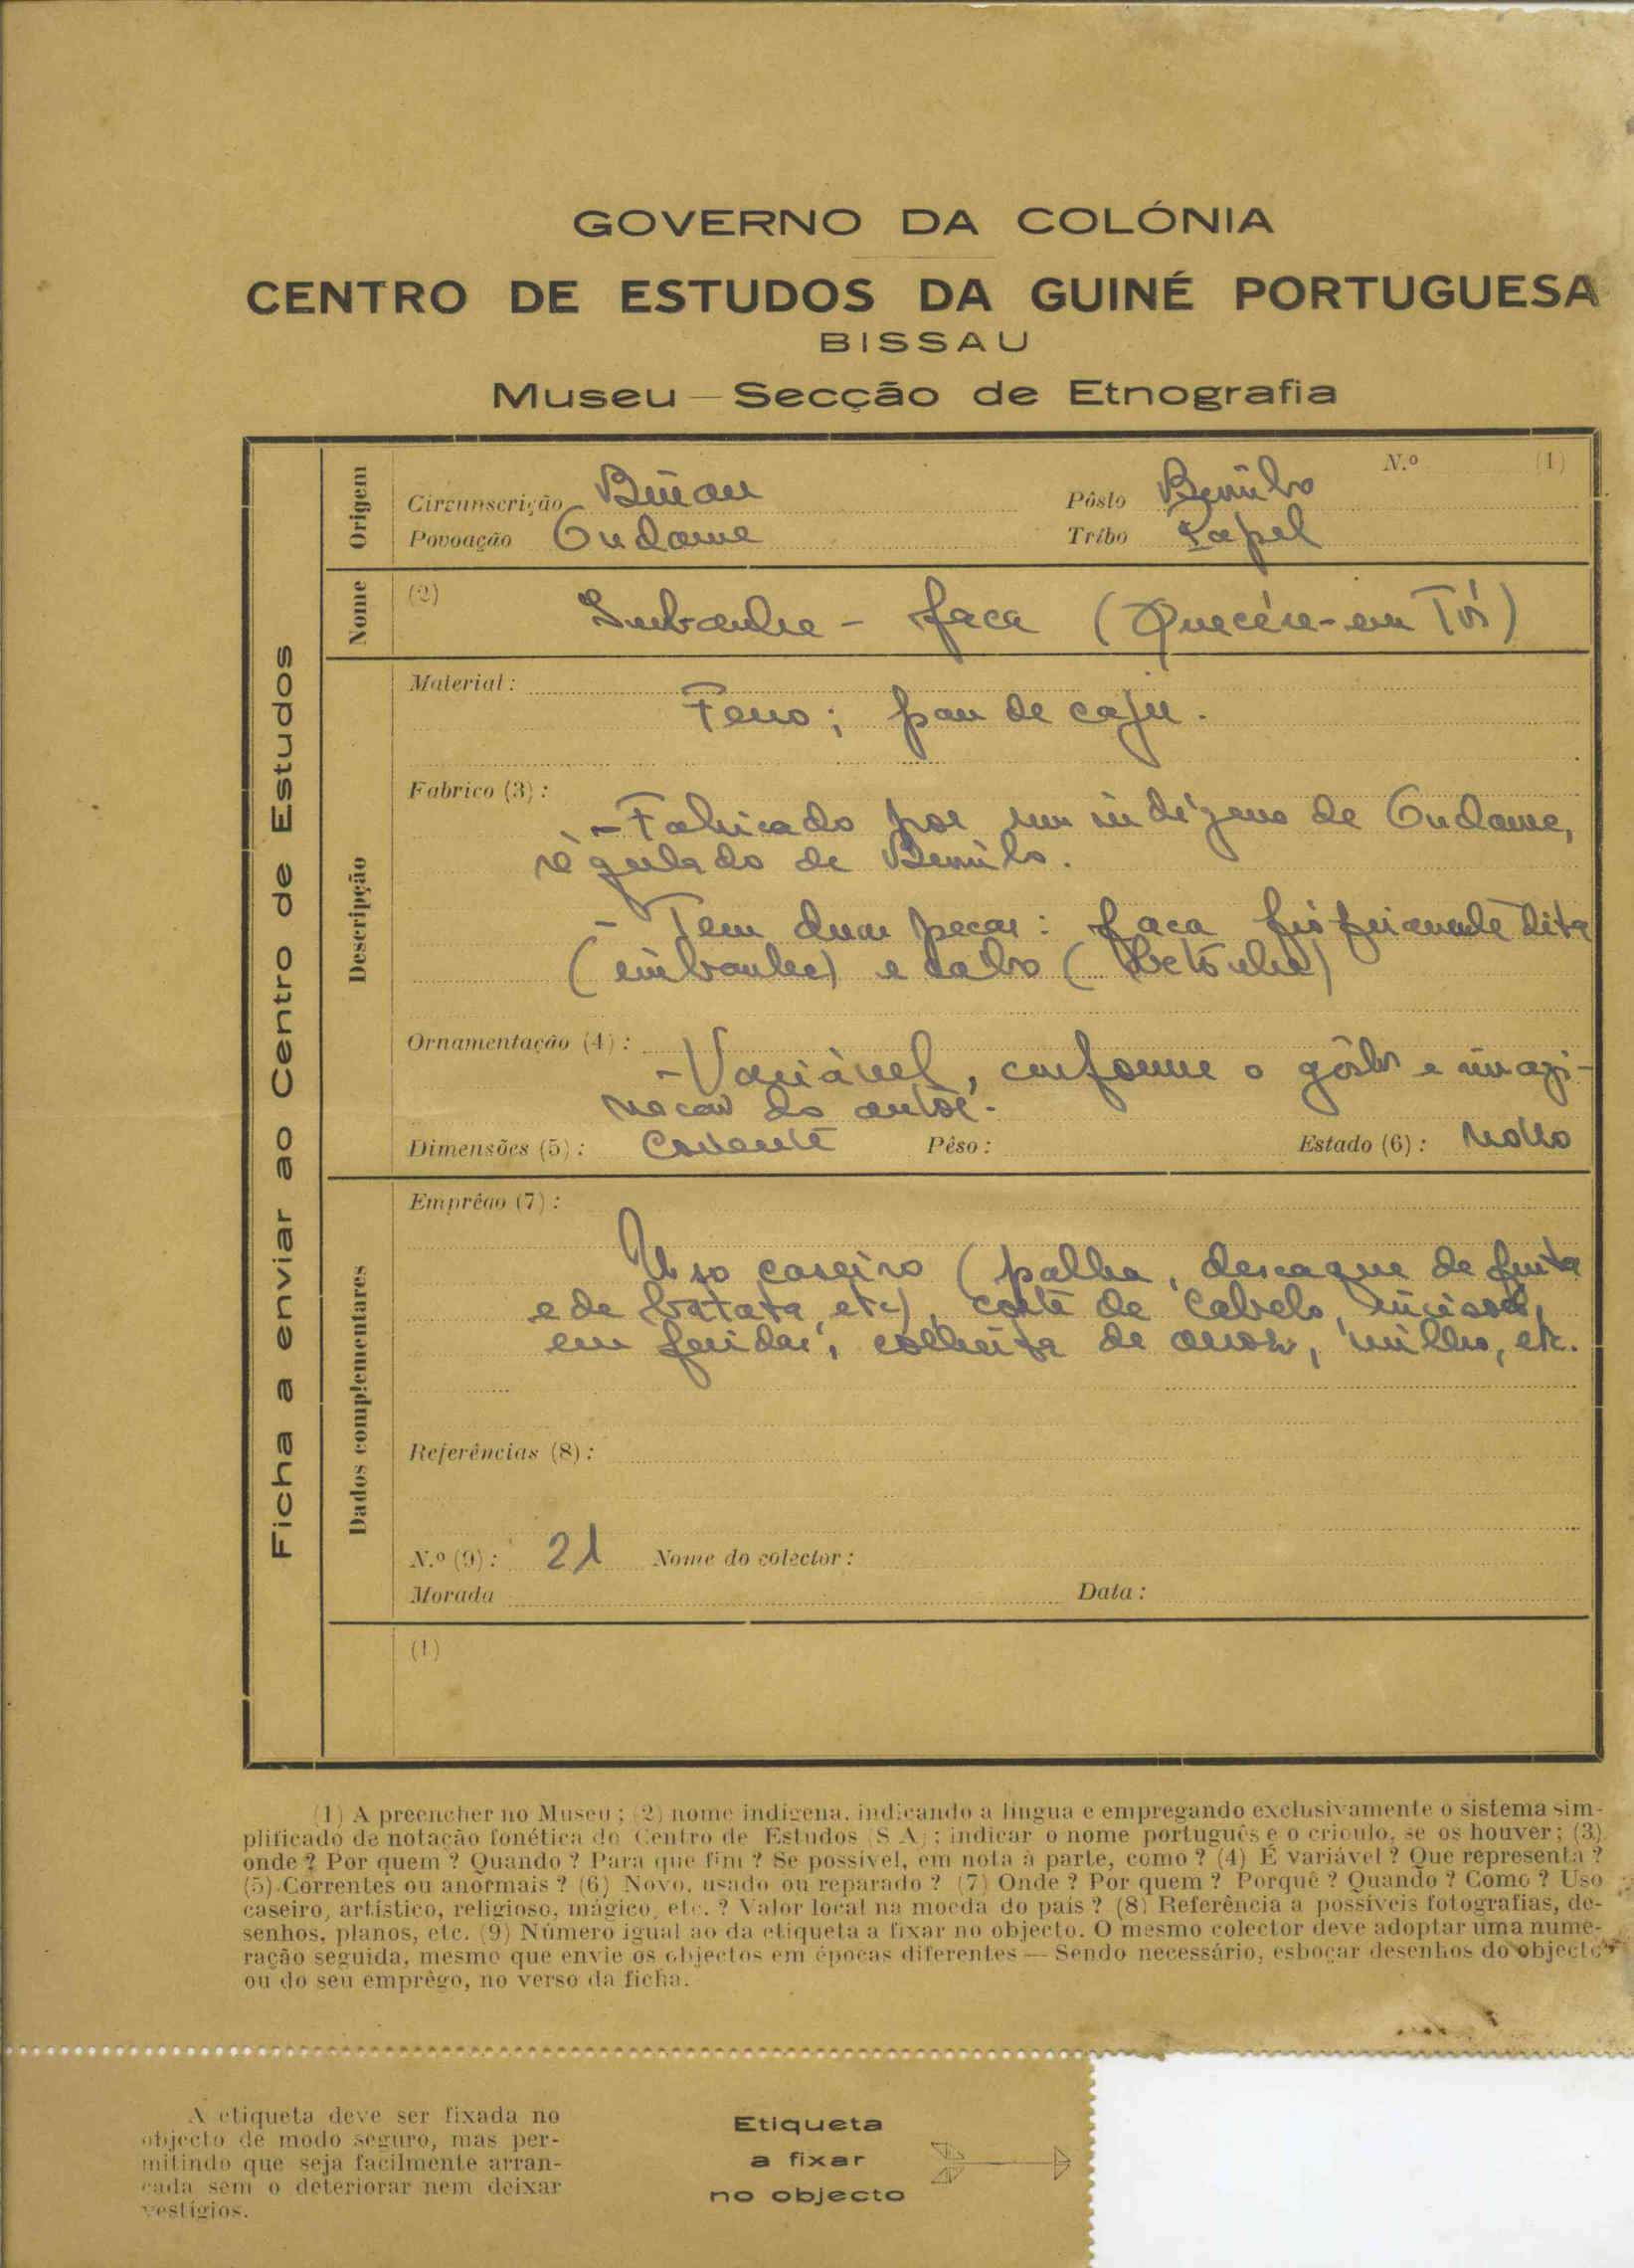 GOVERNO DA COLÓNIA
CENTRO DE ESTUDOS DA GUINÉ PORTUGUESA
BISSAU
Museu — Secção de Etnografia
Ficha a enviar ao Centro de Estudos
Origem
N.º (1)
Circunscrição Bissau Pôsto
Povoação Ondame Tribo Papel
Nome
(2) faca
Descripção
Material:
Ferro; pau de caju.
Fabrico (3):
- Fabricado por um indígena de Ondame,
régulado de
- Tem duas peças: faca pròpriamente dita
e cabo
Ornamentação (4):
- Variável, conforme o gôsto e imagi-
nação do autor.
Dimensões (5): Corrente Pêso: Estado (6): novo
Dados complementares
Emprêgo (7):
Uso caseiro (palha, descaque de fruta
e de batata, etc), corte de cabelo, incisões,
em feridas, colheita de arroz, milho, etc.
Referências (8):
N.º (9): 21 Nome do colector:
Morada Data:
(1)
(1) A preencher no Museu; (2) nome indígena, indicando a língua e empregando exclusivamente o sistema sim-
plificado de notação fonética do Centro de Estudos (S A); indicar o nome português e o crioulo, se os houver; (3)
onde? Por quem? Quando? Para que fim? Se possível, em nota à parte, como? (4) É variável? Que representa?
(5) Correntes ou anormais? (6) Novo, usado ou reparado? (7) Onde? Por quem? Porquê? Quando? Como? Uso
caseiro, artístico, religioso, mágico, etc.? Valor local na moeda do país? (8) Referência a possíveis fotografias, de-
senhos, planos, etc. (9) Número igual ao da etiqueta a fixar no objecto. O mesmo colector deve adoptar uma nume-
ração seguida, mesmo que envie os objectos em épocas diferentes — Sendo necessário, esboçar desenhos do objecto
ou do seu emprêgo, no verso da ficha.
A etiqueta deve ser fixada no
objecto de modo seguro, mas per-
mitindo que seja facilmente arran-
cada sem o deteriorar nem deixar
vestígios.
Etiqueta
a fixar
no objecto